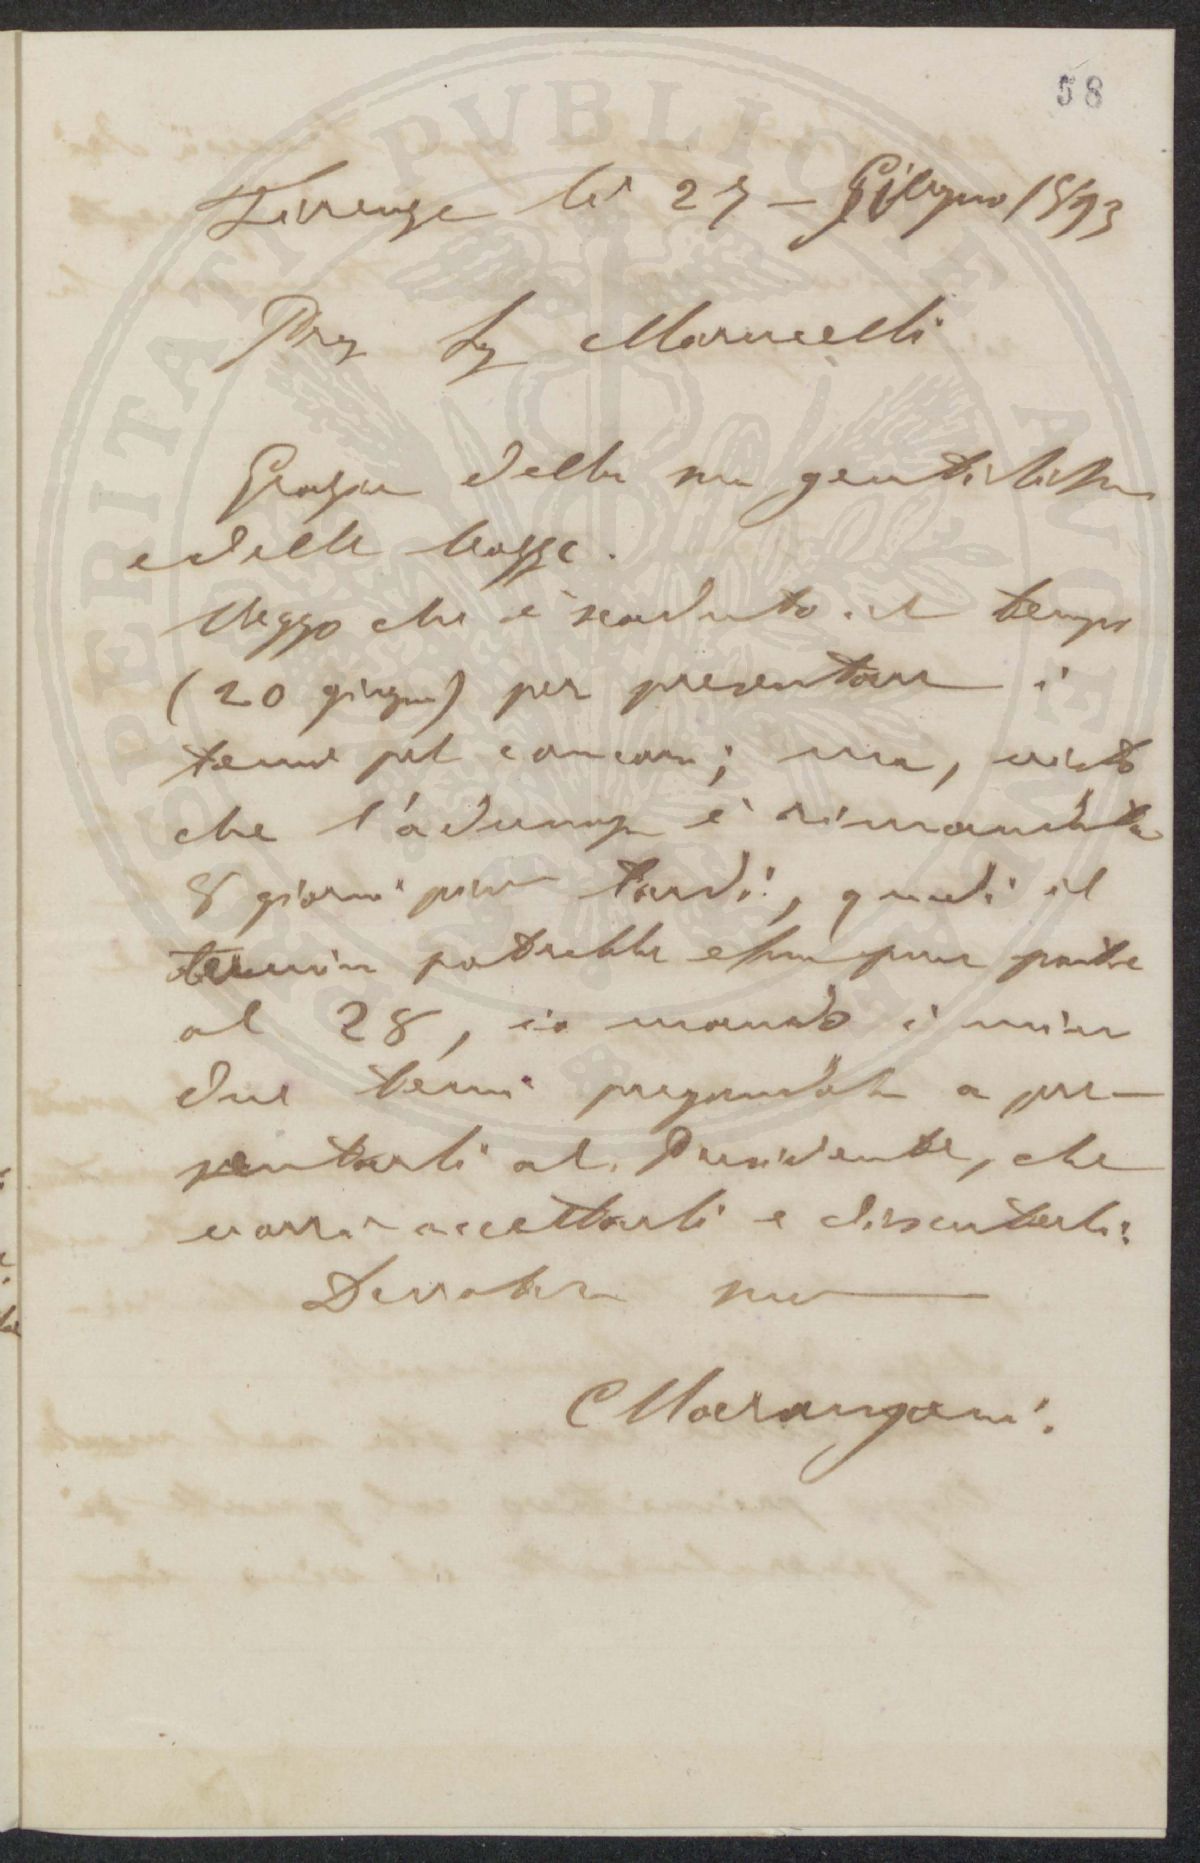 58
Firenze li 27 - Giugno 1893
Preg Sig Marucelli
Grazie della sua gentilissima
e delle bozze.
Veggo che è scaduto il tempo
(20 giugno) per presentare i
temi pel concorso; ma, visto
che l'adunanza è rimandata
8 giorni più tardi, quindi il
termine potrebbe essere pure
al 28, io mando i miei
due temi pregandola a pre-
sentarli al Presidente, che
vorrà accettarli e discuterli.
Devotissimo suo
C Marangoni.